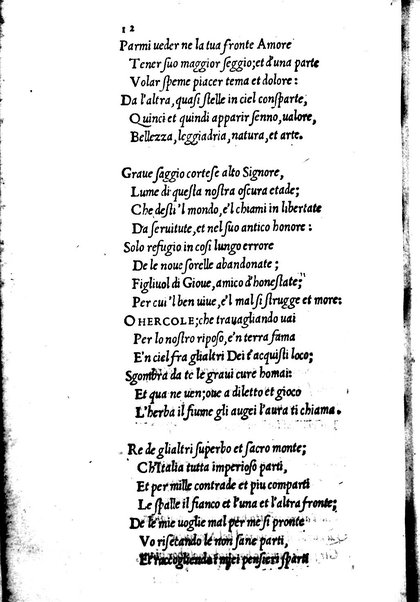 12
Parmi ueder ne la tua fronte Amore
Tener ſuo maggior ſeggio; et d'una parte
Volar ſpeme piacer tema et dolore:
Da l'altra, quaſi ſtelle in ciel conſparte,
Quinci et quindi apparir ſenno, ualore,
Bellezza, leggiadria, natura, et arte.
Graue ſaggio corteſe alto Signore,
Lume di queſta noſtra oſcura etade;
Che deſti 'l mondo, e'l chiami in libertate
Da ſeruitute, et nel ſuo antico honore:
Solo refugio in coſi lungo errore
De le noue ſorelle abandonate;
Figliuol di Gioue, amico d'honeſtate;
Per cui 'l ben uiue, e'l mal ſi ſtrugge et more:
O HERCOLE; che trauagliando uai
Per lo noſtro ripoſo, e'n terra fama
E'n ciel fra glialtri Dei t'acquiſti loco;
Sgombra da te le graui cure homai:
Et qua ne uen; oue a diletto et gioco
L'herba il fiume gli augei l'aura ti chiama.
Re de glialtri ſuperbo et ſacro monte;
Ch'Italia tutta imperioſo parti,
Et per mille contrade et piu comparti
Le ſpalle il fianco et l'una et l'altra fronte;
De le mie uoglie mal per me ſi pronte
Vo riſecando le non ſane parti,
Et raccogliendo i miei penſieri ſparti